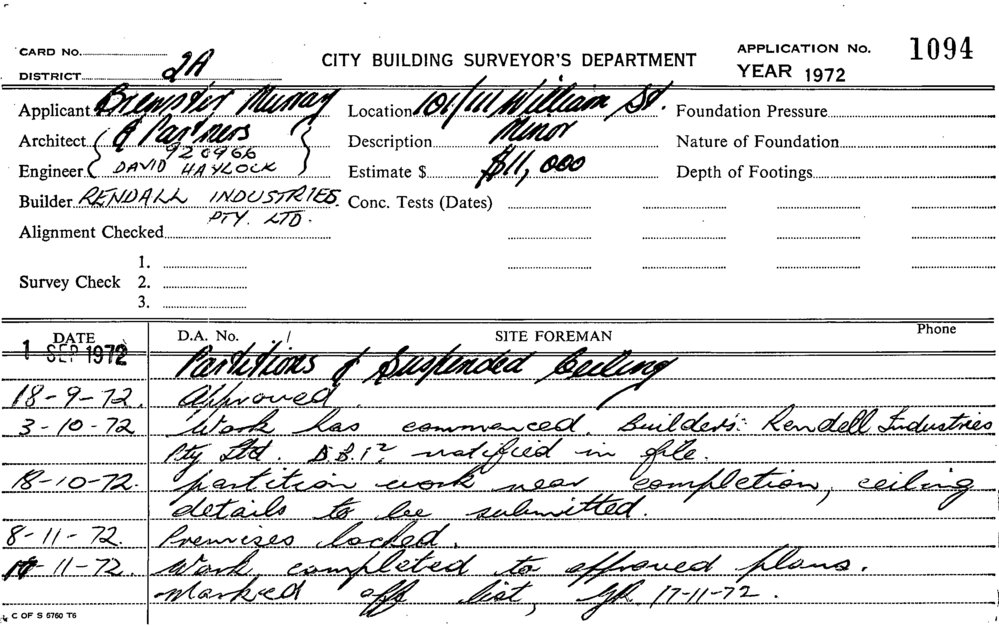 CARD No.
CITY BUILDING SURVEYOR'S DEPARTMENT
APPLICATION No. 1094
DISTRICT 2A
YEAR 1972
Applicant Brewster Murray
Location 101/111 William St.
Foundation Pressure
Architect & Partners
Description Minor
Nature of Foundation
920966
Engineer DAVID HAYLOCK
Estimate $ $11,000
Depth of Footings
Builder RENDALL INDUSTRIES
PTY. LTD.
Conc. Tests (Dates)
Alignment Checked
Survey Check
1.
2.
3.
DATE
D.A. No.
SITE FOREMAN
Phone
1 SEP 1972 Partitions & Suspended Ceiling
18-9-72. Approved.
3-10-72 Work has commenced. Builders: Rendell Industries
Pty Ltd. notified in file.
18-10-72. partition work near completion, ceiling
details to be submitted.
8-11-72. Premises locked.
-11-72. Work completed to approved plans.
Marked off list, 17-11-72.
C OF S 5760 T6